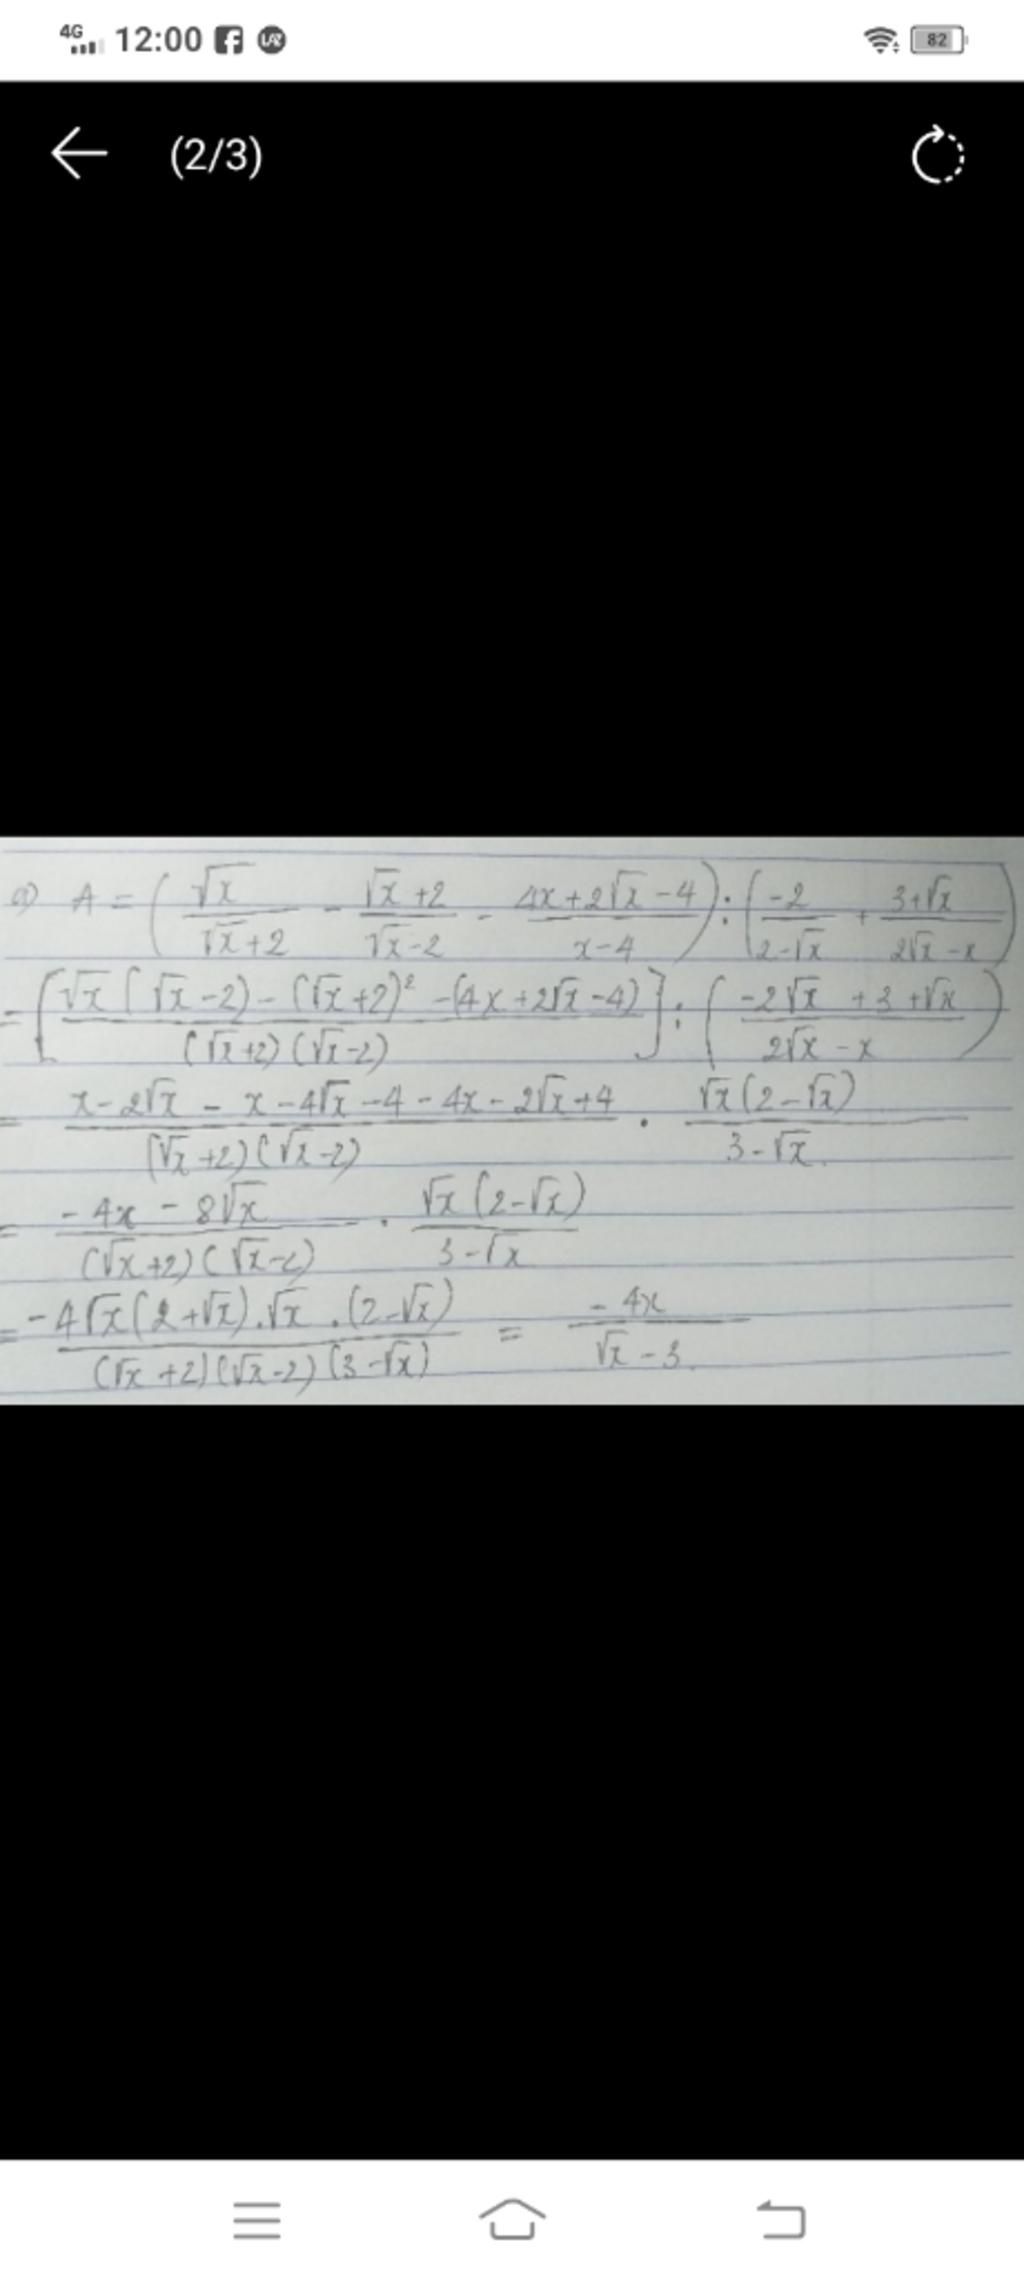 4G 12:00 82
(2/3)
a) A = (√x/(√x+2) - (√x+2)/(√x-2) - (4x+2√x-4)/(x-4)) : (-2/(2-√x) + (3+√x)/(2√x-x))
= [(√x(√x-2) - (√x+2)² - (4x+2√x-4))/((√x+2)(√x-2))] : ((-2√x+3+√x)/(2√x-x))
= (x-2√x-x-4√x-4-4x-2√x+4)/((√x+2)(√x-2)) . √x(2-√x)/(3-√x)
= (-4x-8√x)/((√x+2)(√x-2)) . √x(2-√x)/(3-√x)
= (-4√x(2+√x).√x.(2-√x))/((√x+2)(√x-2)(3-√x)) = -4x/(√x-3)